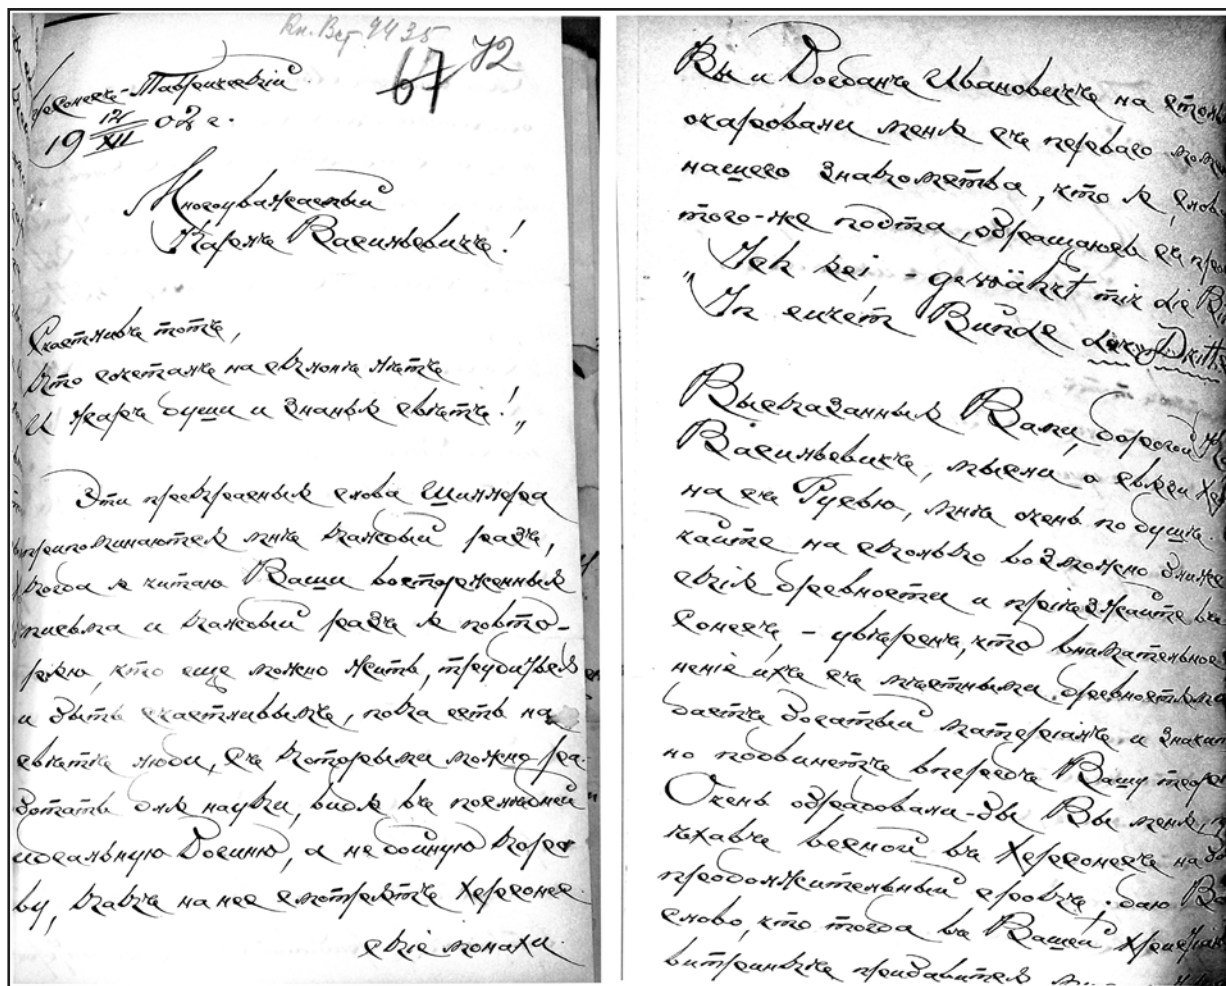 Кн. Вст. 9435
67 72
Херсонесъ-Таврическій
19 12/XII 02 г.
Многоуважаемый
Карлъ Васильевичъ!
Счастливъ тотъ,
кто сочеталъ на склонѣ лѣтъ
И жаръ души и знанья свѣтъ!„
Эти прекрасныя слова Шиллера
припоминаются мнѣ каждый разъ,
когда я читаю Ваши восторженныя
письма и каждый разъ я повто-
ряю, что еще можно жить, трудиться
и быть счастливымъ, пока есть на
свѣтѣ люди, съ которыми можно ра-
ботать для науки, видя въ послѣдней
идеальную Богиню, а не дойную коро
ву, какъ на нее смотрятъ Херсонес
скіе монахи.
Вы и Богданъ Ивановичъ на столь
очаровали меня съ перваго мом
нашего знакомства, что я, слов
того-же поэта, обращаюсь съ про
„Ich sei, - gewährt mir die Bi
„In eurem Bunde der Dritt
Высказанныя Вами, дорогой К
Васильевичъ, мысли о связи Хер
на съ Русью, мнѣ очень по душѣ.
кайте на сколько возможно ближе
скія древности и пріѣзжайте въ
сонесъ, - увѣренъ, что внимательное
неніе ихъ съ мѣстными древностями
дастъ богатый матеріалъ и значит
но подвинетъ впередъ Вашу теор
Очень обрадовали-бы Вы меня,
ѣхавъ весной въ Херсонесъ на б
продолжительный срокъ: даю Ва
слово, что тогда въ Вашей христіан
витринкѣ прибавится